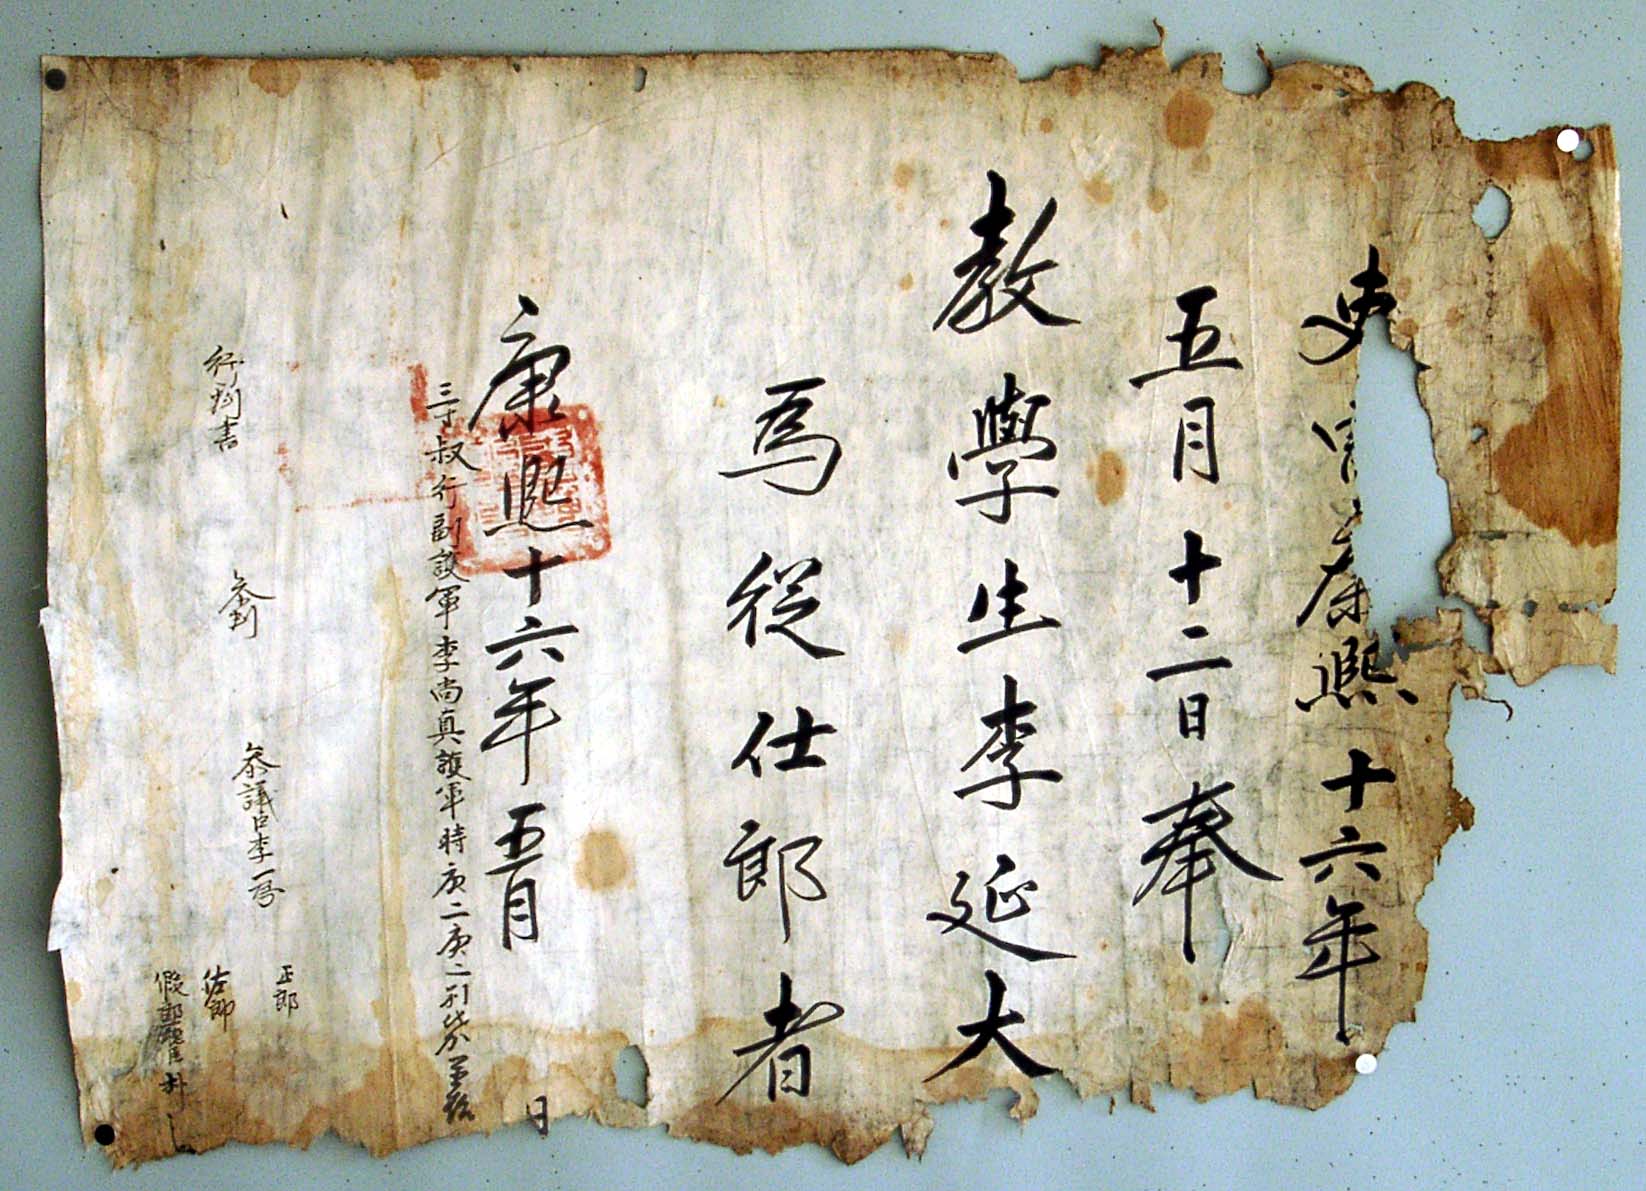 吏 康熙十六年
五月十二日奉
教學生李延大
爲從仕郎者
康熙十六年五月 日
三寸叔行副護軍李尚真護軍時庚二庚二
行判書
參判
參議臣李
正郎
佐郎
假郎